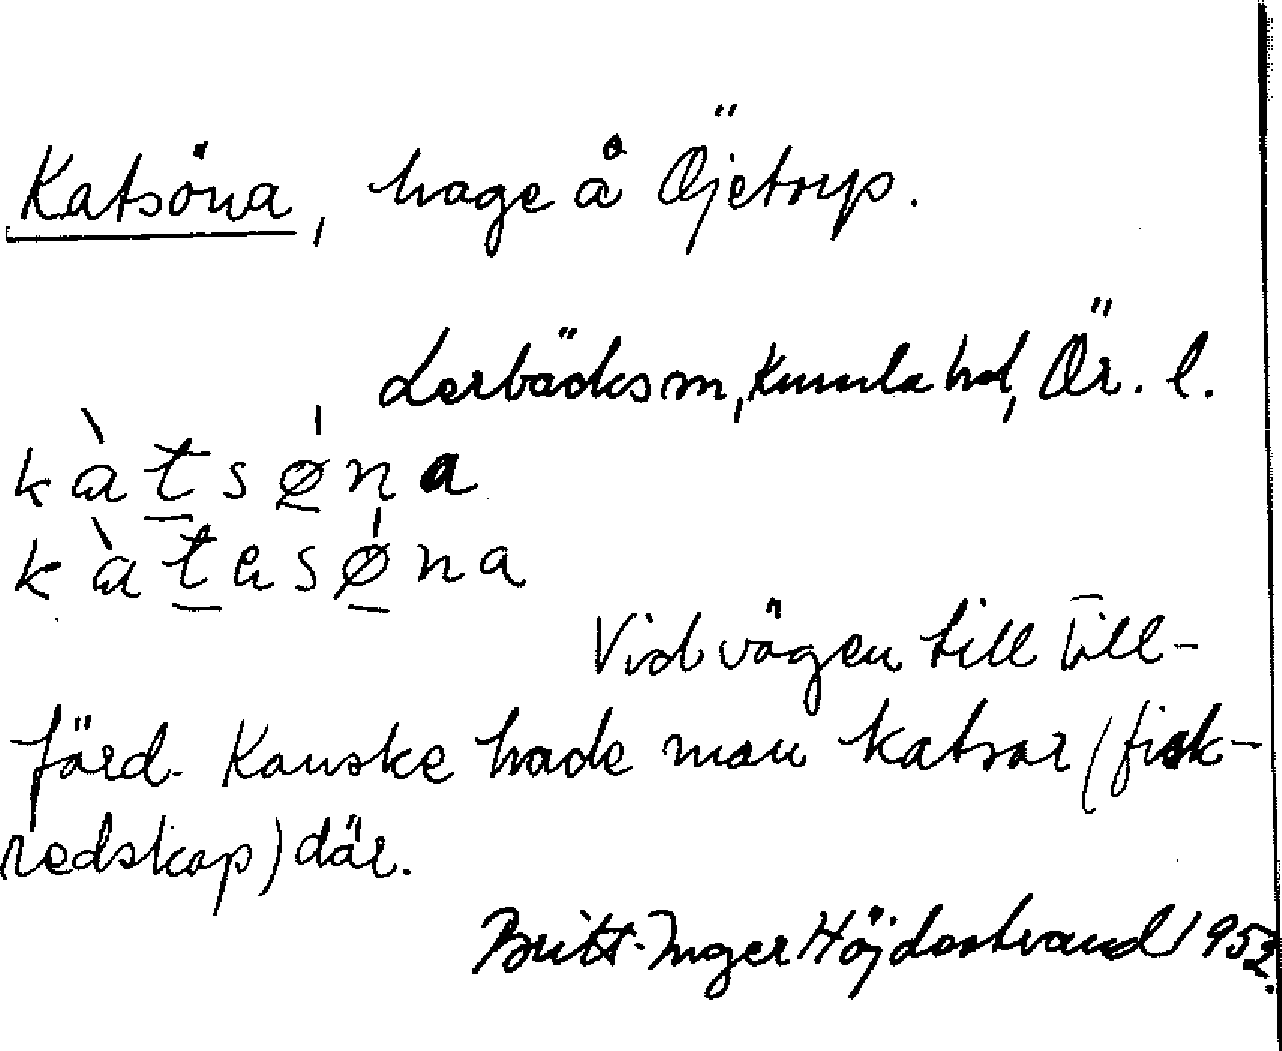 Katsöna, hage å Öjetorp.
Lerbäcks sn, Kumla hd, Ör. l.
kàtsø̱na
kàtesø̱na
Vid vägen till Till-
förd. Kanske hade man katsor (fisk-
redskap) där.
Britt-Inger Höjdestrand 1952.